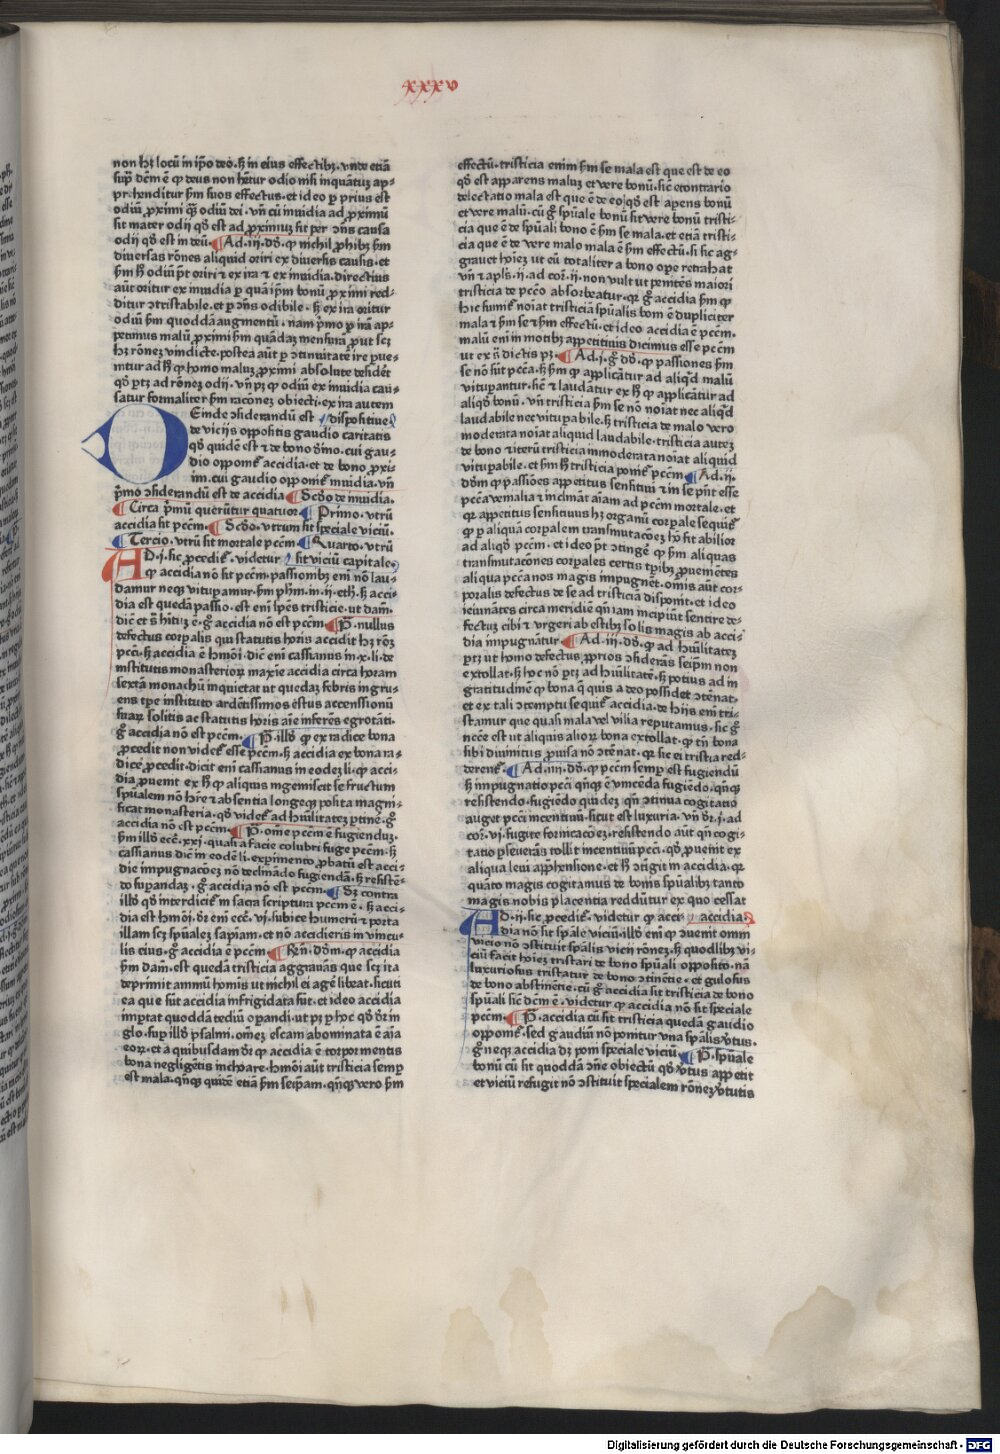 xxxv
non hʒ locū in ip̄o deo. sʒ in eius effectibꝫ. vnde etiā
sup̄ dc̄m ē ꝙ deus non hētur odio nisi inquātuʒ ap⸗
prehenditur s̄m suos effectus. et ideo ꝑ prius est
odiū ꝓximi q̄ʒ odiū dei. vn̄ cū inuidia ad ꝓximū
sit mater odij qd̄ est ad ꝓximuʒ fit per ↄn̄s causa
odij qd̄ est in deū. Ad .iij. dd̄. ꝙ nichil ꝓhibʒ s̄m
diuersas rōnes aliquid oriri ex diuersis causis. et
s̄m hͦ odiū pt̄ oriri ⁊ ex ira ⁊ ex inuidia. directius
aūt oritur ex inuidia ꝑ quā ip̄m bonū ꝓximi red⸗
ditur ↄtristabile. et ꝑ ↄn̄s odibile. sʒ ex ira oritur
odiū s̄m quoddā augmentū. nam p̄mo ꝑ irā ap⸗
petimus malū ꝓximi s̄m quādaʒ mensurā ꝓut scʒ
hʒ rōneʒ vindicte. postea aūt ꝑ ↄtinuitatē ire ꝑue⸗
nitur ad hͦ ꝙ homo maluʒ ꝓximi absolute desideꝛ
qd̄ ꝑtʒ ad rōneʒ odij. vn̄ pʒ ꝙ odiū ex inuidia cau⸗
satur formaliter s̄m racioneʒ obiecti. ex ira autem
Deinde ↄsiderandū est dispositiue
de vicijs oppositis gaudio caritatis
qd̄ quidē est ⁊ de bono diuīo. cui gau⸗
dio oppoīt accidia. et de bono ꝓxi⸗
mi. cui gaudio oppoīt inuidia. vn̄
p̄mo ↄsiderandū est de accidia Scd̄o de inuidia.
Circa p̄mū querūtur quatuor. Primo. vtrū
accidia sit pccm̄. Scd̄o. vtrum sit speciale viciū.
Tercio. vtrū sit mortale pccm̄ Quarto. vtrū
AD .i. sic ꝓcedit. videtur sit viciū capitale.
ꝙ accidia nō sit pccm̄. passionibꝫ enī nō lau⸗
damur neqꝫ vitupamur. s̄m ph̄m in .ij. eth. sʒ acci⸗
dia est quedā passio. est enī sp̄es tristicie. ut dam̄.
dic̄ et s̄ hitū ē. gͦ accidia nō est pccm̄. P̄. nullus
defectus corꝑalis qui statutis horis accidit hʒ rōʒ
pccī. sʒ accidia ē hmōi. dic̄ enī cassianus in .x. li. de
institutis monasterioꝝ maxīe accidia circa horam
sextā monachū inquietat ut quedaʒ febris ingru⸗
ens tpe instituto ardētissimos estus accessionū
suaꝝ solitis ac statutis horis aīe inferēs egrotāti.
gͦ accidia nō est pccm̄. P̄. illd̄ qd̄ ex radice bona
ꝓcedit non videt esse pccm̄. sʒ accidia ex bona ra⸗
dice ꝓcedit. dicit enī cassianus in eodeʒ li. ꝙ acci⸗
dia ꝓuenit ex hͦ ꝙ aliquis ingemiscit se fructum
sp̄ualem nō hr̄e ⁊ absentia longeqꝫ posita magni⸗
ficat monasteria. qd̄ videt ad hūilitateʒ ꝑtinē. gͦ
accidia nō est pccm̄ P̄. om̄e pccm̄ ē fugienduʒ.
s̄m illd̄ ecc̄. xxi. quasi a facie colubri fuge pccm̄. sʒ
cassianus dic̄ in eodē li. experimento ꝓbatū est acci⸗
die impugnacōeʒ nō declinādo fugiendā. sʒ resistē⸗
do supandaʒ. gͦ accidia nō est pccm̄. Sʒ contra
illd̄ qd̄ interdicit in sacra scriptura pccm̄ ē. sʒ acci⸗
dia est hmōi. dr̄ enī ecc̄. vi. subice humerū ⁊ porta
illam scʒ sp̄ualeʒ sapīam. et nō accidieris in vincu⸗
lis eius. gͦ accidia ē pccm̄ Rn̄. dd̄m. ꝙ accidia
s̄m dam̄. est quedā tristicia aggrauās que scʒ ita
deprimit animū homis ut nichil ei agē libeat. sicuti
ea que sūt accidia infrigidata sūt. et ideo accidia
imꝑtat quoddā tediū operandi. ut pʒ ꝑ hoc qd̄ dr̄ in
glo. sup illd̄ psalmi. om̄eʒ escam abominata ē aīa
eoꝝ. et a quibusdam dr̄ ꝙ accidia ē torpor mentis
bona negligētis inchoare. hmōi aūt tristicia semꝑ
est mala. qn̄qꝫ quidē etiā s̄m seip̄am. qn̄qꝫ vero s̄m
effectū. tristicia enim s̄m se mala est que est de eo
qd̄ est apparens maluʒ et vere bonū. sic̄ econtrario
delectatio mala est que ē de eo qd̄ est apēns bonū
et vere malū. cū gͦ sp̄uale bonū sit vere bonū tristi⸗
cia que ē de sp̄uali bono ē s̄m se mala. et etiā tristi⸗
cia que ē de vere malo mala ē s̄m effectū. si sic ag⸗
grauet hoīeʒ ut eū totaliter a bono oꝑe retrahat
vn̄ ⁊ apls̄. ij. ad cor̄. ij. non vult ut penitēs maiori
tristicia de pccō absorbeatur. qꝛ gͦ accidia s̄m ꝙ
hic sumit noīat tristiciā sp̄ualis boni ē dupliciter
mala ⁊ s̄m se ⁊ s̄m effectū. et ideo accidia ē pccm̄.
malū enī in motibꝫ appetitiuis dicimus esse pccm̄
ut ex s̄ dictis pʒ. Ad .i. gͦ dd̄. ꝙ passiones s̄m
se nō sūt pccā. sʒ s̄m ꝙ applicātur ad aliqd̄ malū
vituꝑantur. sic̄ ⁊ laudātur ex hͦ ꝙ applicātur ad
aliqd̄ bonū. vn̄ tristicia s̄m se nō noīat nec aliqd̄
laudabile nec vituꝑabile. sʒ tristicia de malo vero
moderata noīat aliquid laudabile. tristicia auteʒ
de bono ⁊ iterū tristicia immoderata noīat aliquid
vituꝑabile. et s̄m hͦ tristicia ponit pccm̄. Ad .ij.
dd̄m ꝙ passiōes appetitus sensitiui ⁊ in se pn̄t esse
pccā venialia ⁊ inclināt aīam ad pccm̄ mortale. et
qꝛ appetitus sensitiuus hʒ organū corꝑale sequit
ꝙ ꝑ aliquā corꝑalem transmutacōeʒ hō fit abilior
ad aliqd̄ pccm̄. et ideo pt̄ ↄtingē ꝙ s̄m aliquas
transmutacōnes corꝑales certis tꝑibꝫ ꝓuenietes
aliqua pccā nos magis impugnēt. om̄is aūt cor⸗
poralis defectus de se ad tristiciā disponit. et ideo
ieiunātes circa meridiē qn̄ iam incipiūt sentire de⸗
fectuʒ cibi ⁊ vrgeri ab estibꝫ solis magis ab acci⸗
dia impugnātur. Ad .iij. dd̄. ꝙ ad hūilitateʒ
ꝑtʒ ut homo defectus ꝓprios ↄsiderās seip̄m non
extollat. sʒ hͦ nō ꝑtʒ ad hūilitatē. sʒ potius ad in
gratitudinē ꝙ bona q̄ quis a deo possidet ↄtēnat.
et ex tali ↄtemptu sequit accidia. de hijs enī tri⸗
stamur que quasi mala vel vilia reputamus. sic gͦ
ncc̄e est ut aliquis alioꝝ bona extollat. ꝙ tn̄ bona
sibi diuinitus ꝓuisa nō ↄtēnat. qꝛ sic ei tristia red⸗
derent. Ad .iiij. dd̄. ꝙ pccm̄ semꝑ est fugiendū
sʒ impugnatio pccī qn̄qꝫ ē vincēda fugiēdo. qn̄qꝫ
resistendo. fugiēdo quideʒ qn̄ ↄtinua cogitatio
auget pccī incentiuū. sicut est luxuria. vn̄ dr̄ .i. ad
cor̄. vi. fugite fornicacōeʒ. resistendo aūt qn̄ cogi⸗
tatio ꝑseuerās tollit incentiuū pccī. qd̄ ꝓuenit ex
aliqua leui app̄hensione. et hͦ ↄtīgit in accidia. qꝛ
quāto magis cogitamus de bonis sp̄ualibꝫ tanto
magis nobis placentia reddūtur ex quo cessat
AD .ij. sic ꝓcedit. videtur ꝙ acci⸗ accidia.
dia nō sit sp̄ale viciū. illd̄ enī qd̄ ↄuenit omni
vicio nō ↄstituit sp̄alis vicij rōneʒ. sʒ quodlibꝫ vi⸗
ciū facit hoīeʒ tristari de bono sp̄uali opposito. nā
luxuriosus tristatur de bono ↄtinētie. et gulosus
de bono abstinētie. cū gͦ accidia sit tristicia de bono
sp̄uali sic̄ dc̄m ē. videtur ꝙ accidia nō sit speciale
pccm̄. P̄. accidia cū sit tristicia quedā gaudio
opponit. sed gaudiū nō ponitur vna sp̄alis v̄tus.
gͦ neqꝫ accidia dʒ poni speciale viciū P̄. sp̄uale
bonū cū sit quoddā ↄn̄e obiectū qd̄ v̄tus appetit
et viciū refugit nō ↄstituit specialem rōneʒ v̄tutis
Digitalisierung gefördert durch die Deutsche Forschungsgemeinschaft - DFG